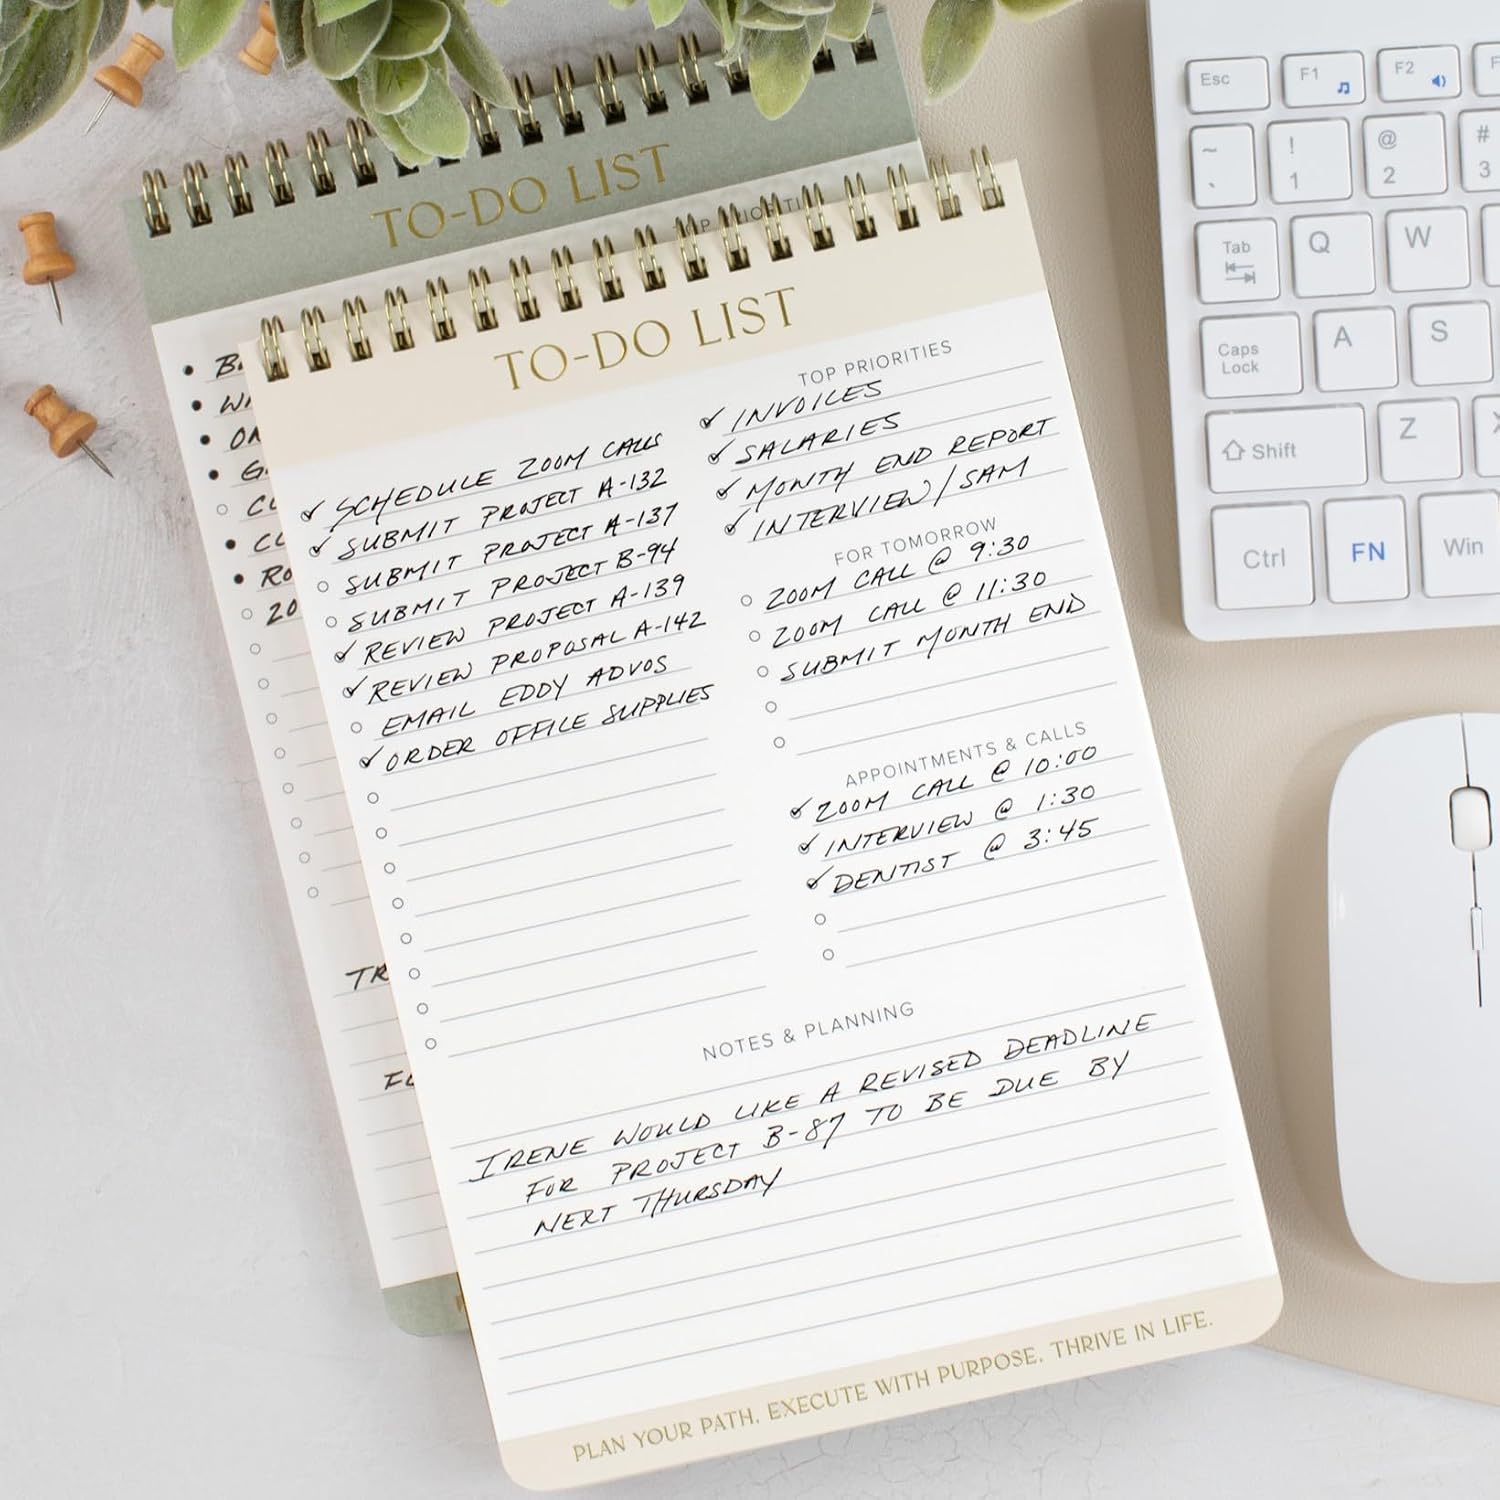 TO-DO LIST
TO-DO LIST
TOP PRIORITIES
INVOICES
SALARIES
MONTH END REPORT
INTERVIEW / SAM
SCHEDULE ZOOM CALLS
SUBMIT PROJECT A-132
SUBMIT PROJECT A-137
SUBMIT PROJECT B-94
REVIEW PROJECT A-139
REVIEW PROPOSAL A-142
EMAIL EDDY ADVOS
ORDER OFFICE SUPPLIES
FOR TOMORROW
ZOOM CALL @ 9:30
ZOOM CALL @ 11:30
SUBMIT MONTH END
APPOINTMENTS & CALLS
ZOOM CALL @ 10:00
INTERVIEW @ 1:30
DENTIST @ 3:45
NOTES & PLANNING
IRENE WOULD LIKE A REVISED DEADLINE
FOR PROJECT B-87 TO BE DUE BY
NEXT THURSDAY
PLAN YOUR PATH. EXECUTE WITH PURPOSE. THRIVE IN LIFE.
Esc F1 F2
~ ! @ #
` 1 2 3
Tab Q W
Caps Lock A S
Shift Z
Ctrl FN Win